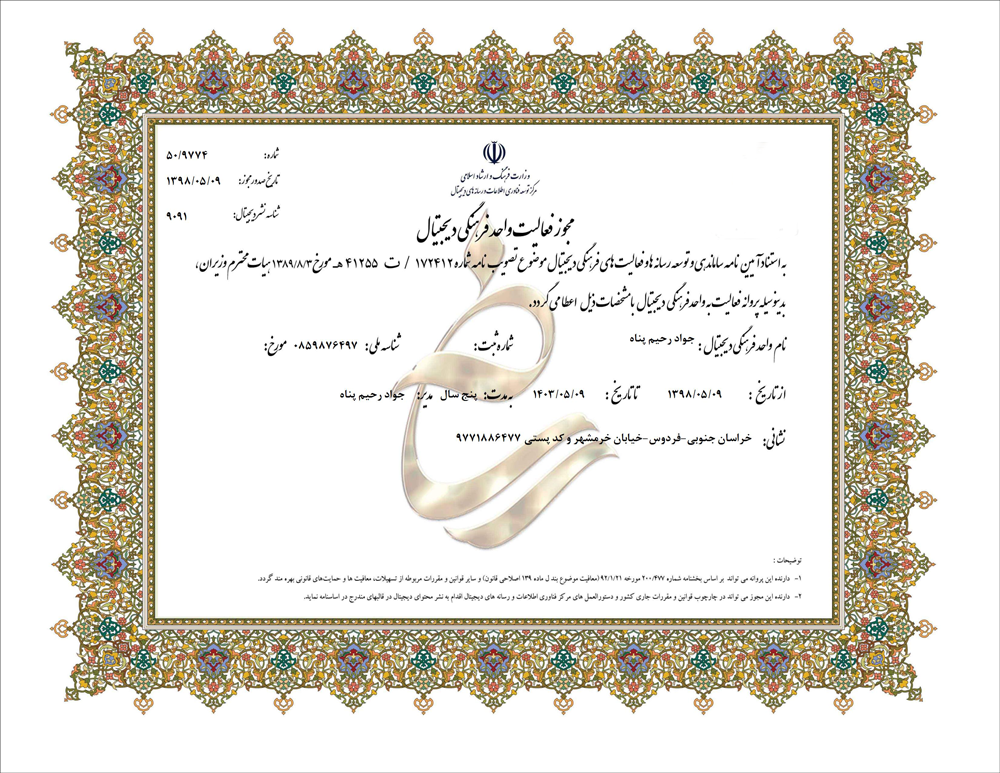 وزارت فرهنگ و ارشاد اسلامی
مرکز توسعه فناوری اطلاعات و رسانه های دیجیتال
شماره: ۵۰/۹۷۷۴
تاریخ صدور مجوز: ۱۳۹۸/۰۵/۰۹
شناسه نشر دیجیتال: ۹۰۹۱
مجوز فعالیت واحد فرهنگی دیجیتال
به استناد آیین نامه ساماندهی و توسعه رسانه ها و فعالیت های فرهنگی دیجیتال موضوع تصویب نامه شماره ۱۷۲۴۱۲ / ت ۴۱۲۵۵ هـ مورخ ۱۳۸۹/۸/۳ هیات محترم وزیران،
بدینوسیله پروانه فعالیت به واحد فرهنگی دیجیتال با مشخصات ذیل اعطا می گردد.
نام واحد فرهنگی دیجیتال: جواد رحیم پناه شماره ثبت: شناسه ملی: ۰۸۵۹۸۷۶۴۹۷ مورخ:
از تاریخ: ۱۳۹۸/۰۵/۰۹ تا تاریخ: ۱۴۰۳/۰۵/۰۹ به مدت: پنج سال مدیر: جواد رحیم پناه
نشانی: خراسان جنوبی-فردوس-خیابان خرمشهر و کد پستی ۹۷۷۱۸۸۶۴۷۷
توضیحات :
۱- دارنده این پروانه می تواند بر اساس بخشنامه شماره ۲۰۰/۴۷۷ مورخه ۹۲/۱/۲۱ (معافیت موضوع بند ل ماده ۱۳۹ اصلاحی قانون) و سایر قوانین و مقررات مربوطه از تسهیلات، معافیت ها و حمایت‌های قانونی بهره مند گردد.
۲- دارنده این مجوز می تواند در چارچوب قوانین و مقررات جاری کشور و دستورالعمل های مرکز فناوری اطلاعات و رسانه های دیجیتال اقدام به نشر محتوای دیجیتال در قالبهای مندرج در اساسنامه نماید.